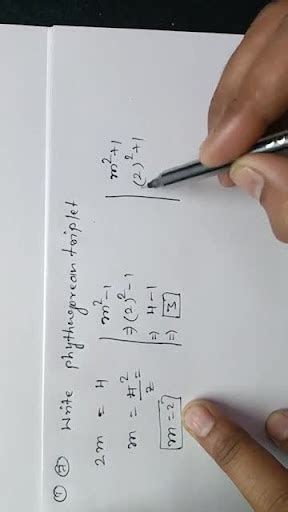 ① ④ Write phythagorean triplet
2m = 4
m = 4²/2
m = 2
m²-1
⇒ (2)²-1
⇒ 4-1
⇒ 3
m²+1
(2)²+1